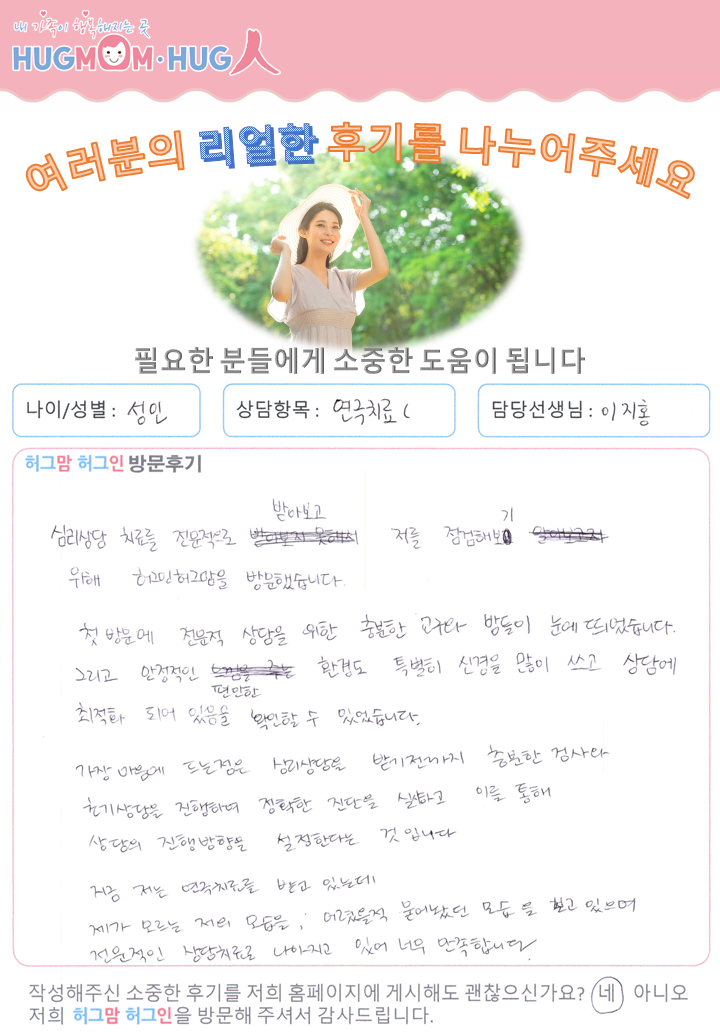 내 가족이 행복해지는 곳
HUGMOM·HUG人
여러분의 리얼한 후기를 나누어주세요
필요한 분들에게 소중한 도움이 됩니다
나이/성별 : 성인
상담항목 : 연극치료
담당선생님 : 이지홍
허그맘 허그인 방문후기
받아보고 기
심리상담 치료를 전문적으로 저를 점검해보
위해 허그인허그맘을 방문했습니다.
첫 방문에 전문적 상담을 위한 충분한 교구와 방들이 눈에 띄었습니다.
그리고 안정적인 환경도 특별히 신경을 많이 쓰고 상담에
편안한
최적화 되어 있음을 확인할 수 있었습니다.
가장 마음에 드는점은 심리상담을 받기전까지 충분한 검사와
초기상담을 진행하며 정확한 진단을 실시하고 이를 통해
상담의 진행방향을 설정한다는 것 입니다
지금 저는 연극치료를 받고 있는데
제가 모르는 저의 모습을, 어렸을적 묻어놨던 모습을 보고 있으며
전문적인 상담치료로 나아지고 있어 너무 만족합니다.
작성해주신 소중한 후기를 저희 홈페이지에 게시해도 괜찮으신가요? 네 아니오
저희 허그맘 허그인을 방문해 주셔서 감사드립니다.